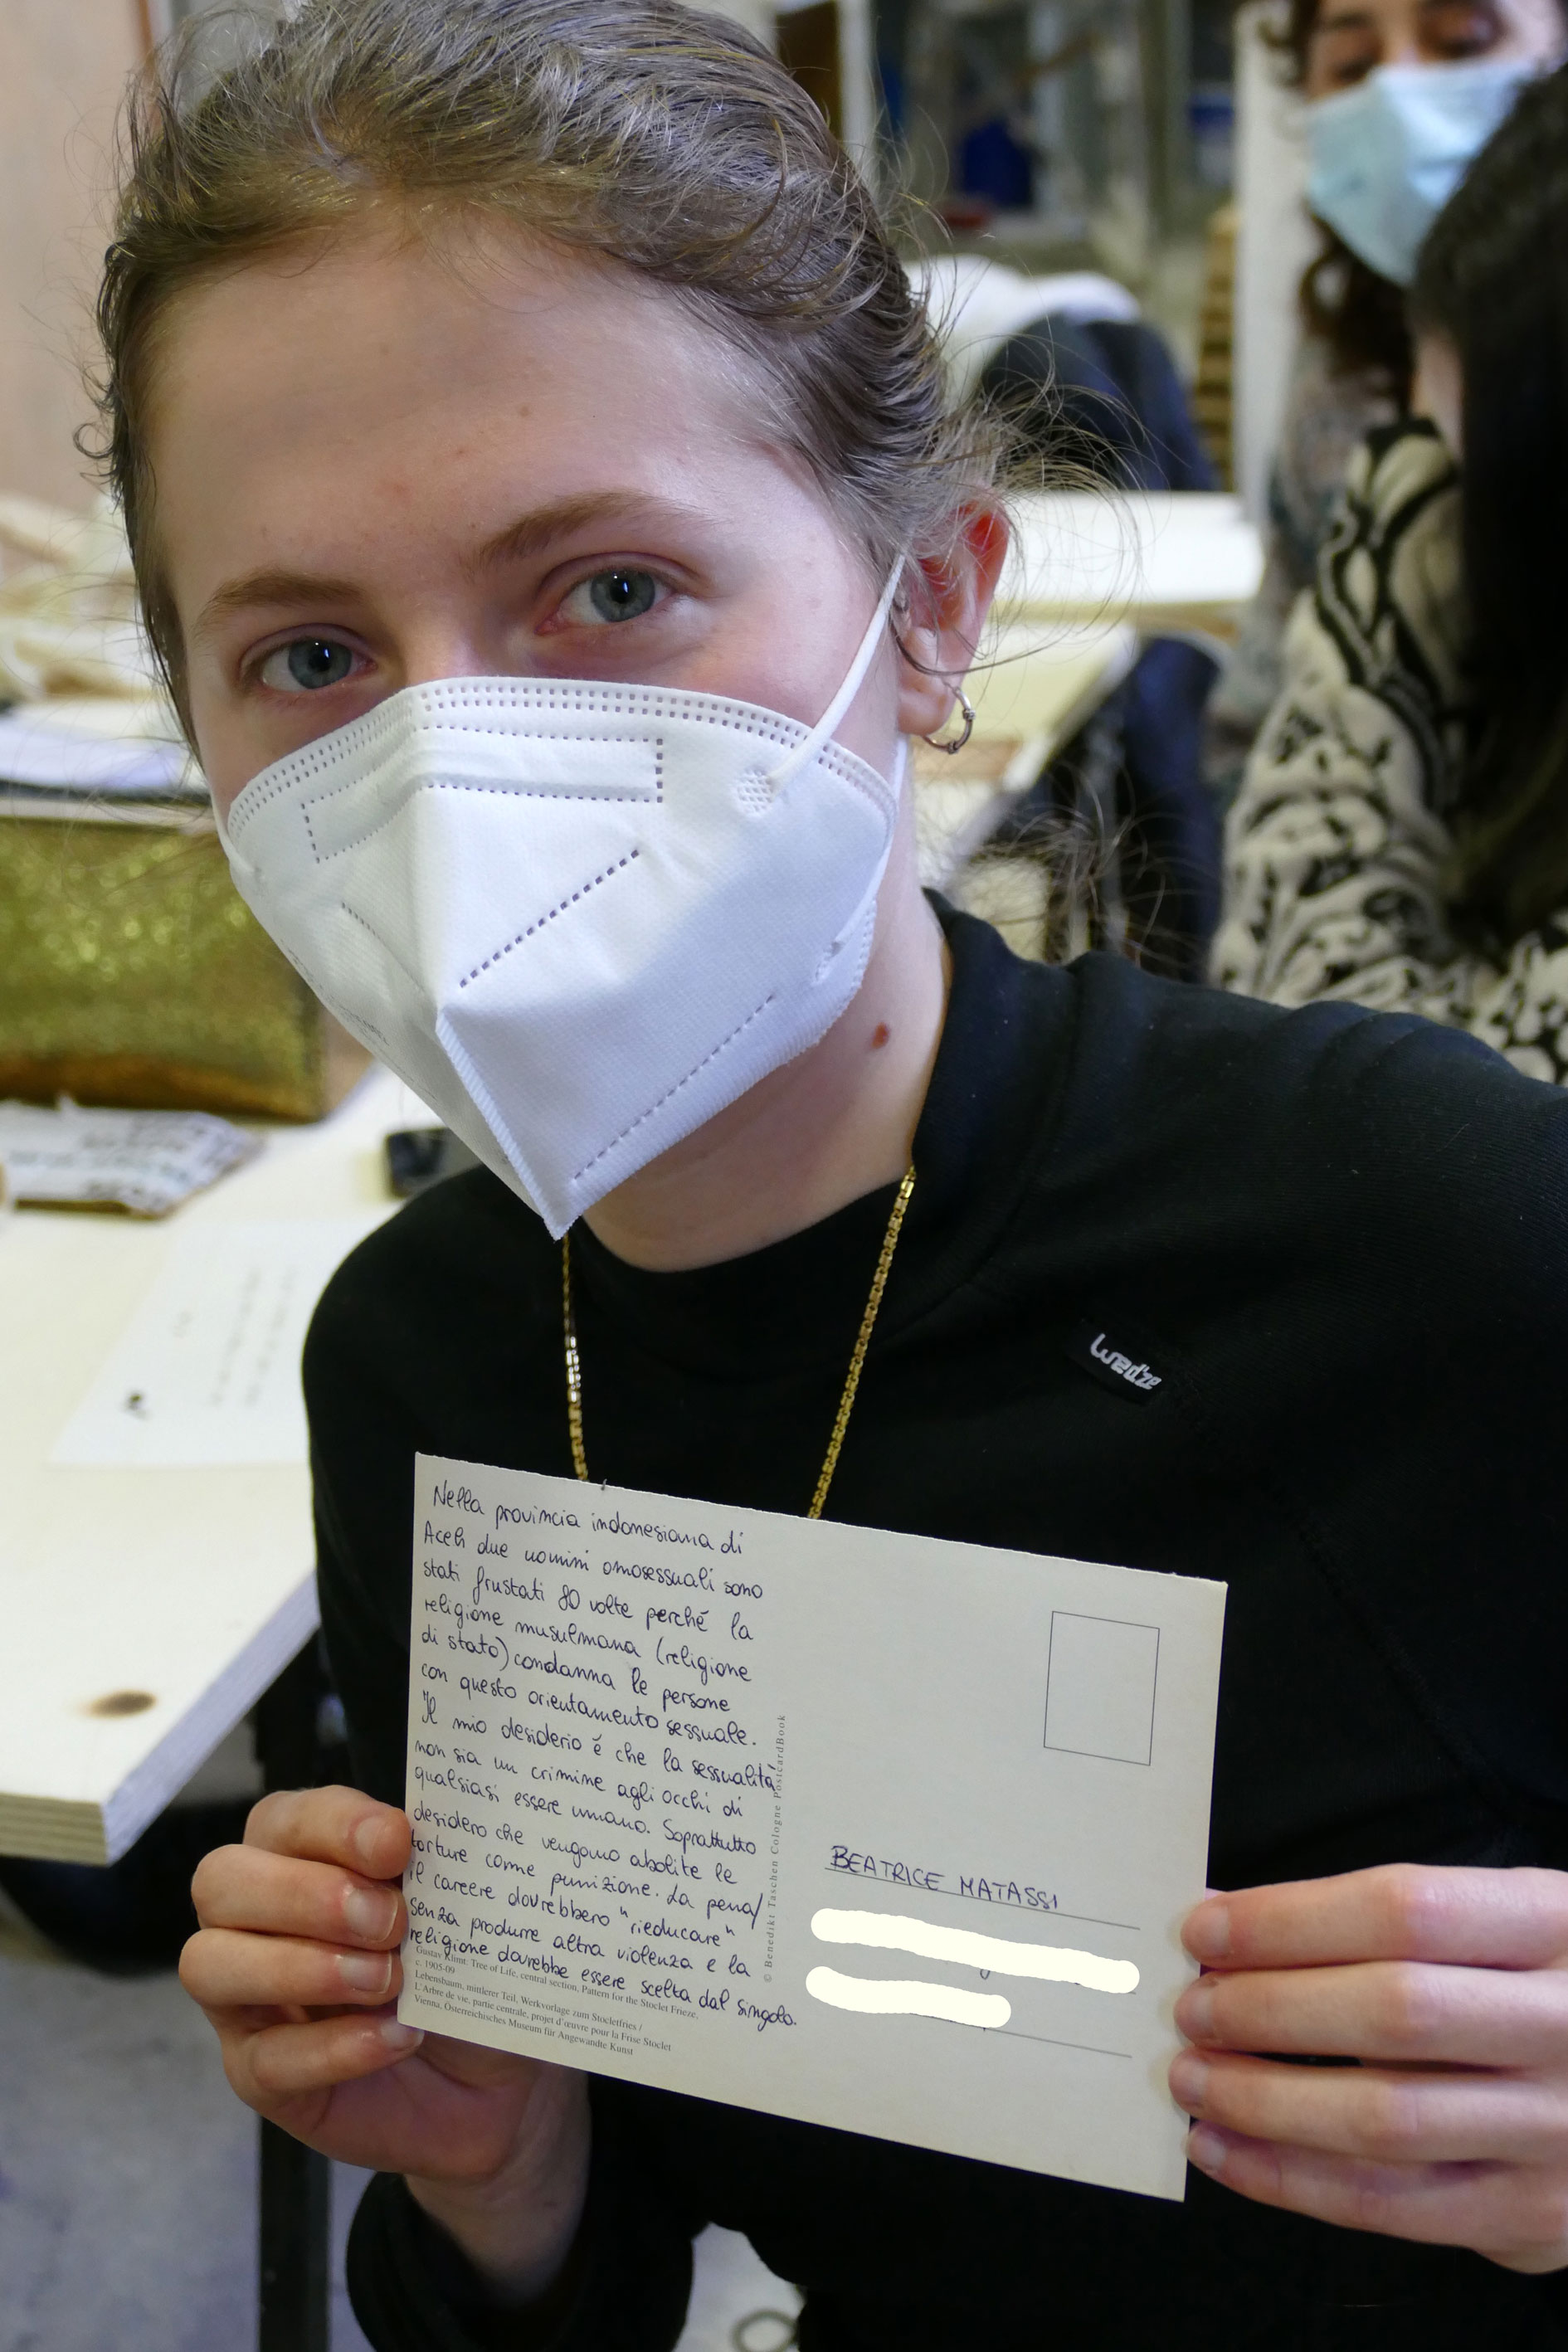 Nella provincia indonesiana di
Aceh due uomini omosessuali sono
stati frustati 80 volte perché la
religione musulmana (religione
di stato) condanna le persone
con questo orientamento sessuale.
Il mio desiderio é che la sessualità
non sia un crimine agli occhi di
qualsiasi essere umano. Soprattutto
desidero che vengano abolite le
torture come punizione. La pena/
il carcere dovrebbero "rieducare"
senza produrre altra violenza e la
religione dovrebbe essere scelta dal singolo.
Gustav Klimt: Tree of Life, central section, Pattern for the Stoclet Frieze,
c. 1905-09
Lebensbaum, mittlerer Teil, Werkvorlage zum Stocletfries /
L'Arbre de vie, partie centrale, projet d'œuvre pour la Frise Stoclet
Vienna, Österreichisches Museum für Angewandte Kunst
© Benedikt Taschen Cologne PostcardBook
BEATRICE MATASSI
wed'ze